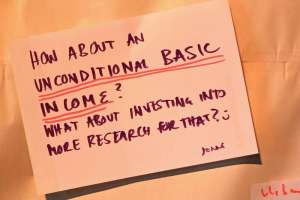 HOW ABOUT AN
UNCONDITIONAL BASIC
INCOME?
WHAT ABOUT INVESTING INTO
MORE RESEARCH FOR THAT?